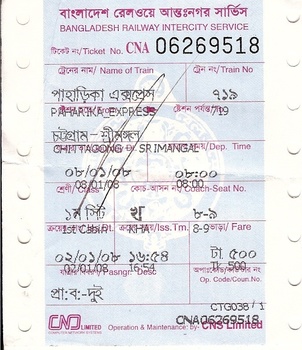 বাংলাদেশ রেলওয়ে আন্তঃনগর সার্ভিস
BANGLADESH RAILWAY INTERCITY SERVICE
টিকেট নং/Ticket No. CNA 06269518
ট্রেনের নাম/ Name of Train ট্রেন নং/ Train No
পাহাড়িকা এক্সপ্রেস ৭১৯
PAHARIKA EXPRESS স্টেশন পর্যন্ত/ 719
চট্টগ্রাম - শ্রীমঙ্গল
CHITTAGONG SRIMANGAL Dep. Time
০৮/০১/০৮ ০৮:০০
08/01/08 08:00
শ্রেণী/ Class কোচ-আসন নং/Coach-Seat No.
১ম সিট খ ৮-৯
1st Cabin KHA Iss.Tm. 8-9 ভাড়া/ Fare
০২/০১/০৮ ১৬:৫৪ টা ৫০০
02/01/08 16:54 Tk 500
Op. Code/Coun.No.
প্রা:ব:-দুই
CTG038 / 1
CNA06269518
CNS LIMITED
Operation & Maintenance: by- CNS Limited